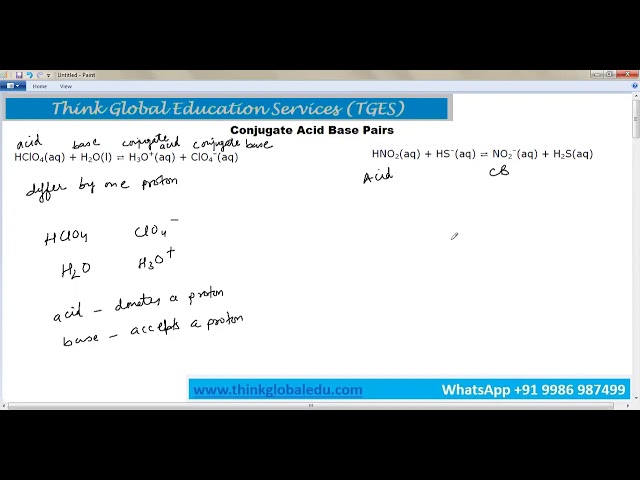 Untitled - Paint
Home View
Think Global Education Services (TGES)
Conjugate Acid Base Pairs
acid base conjugate acid conjugate base
HClO₄(aq) + H₂O(l) = H₃O⁺(aq) + ClO₄⁻(aq)
differ by one proton
HClO4 ClO4⁻
H₂O H₃O⁺
acid – donates a proton
base – accepts a proton
HNO₂(aq) + HS⁻(aq) = NO₂⁻(aq) + H₂S(aq)
Acid CB
www.thinkglobaledu.com WhatsApp +91 9986 987499